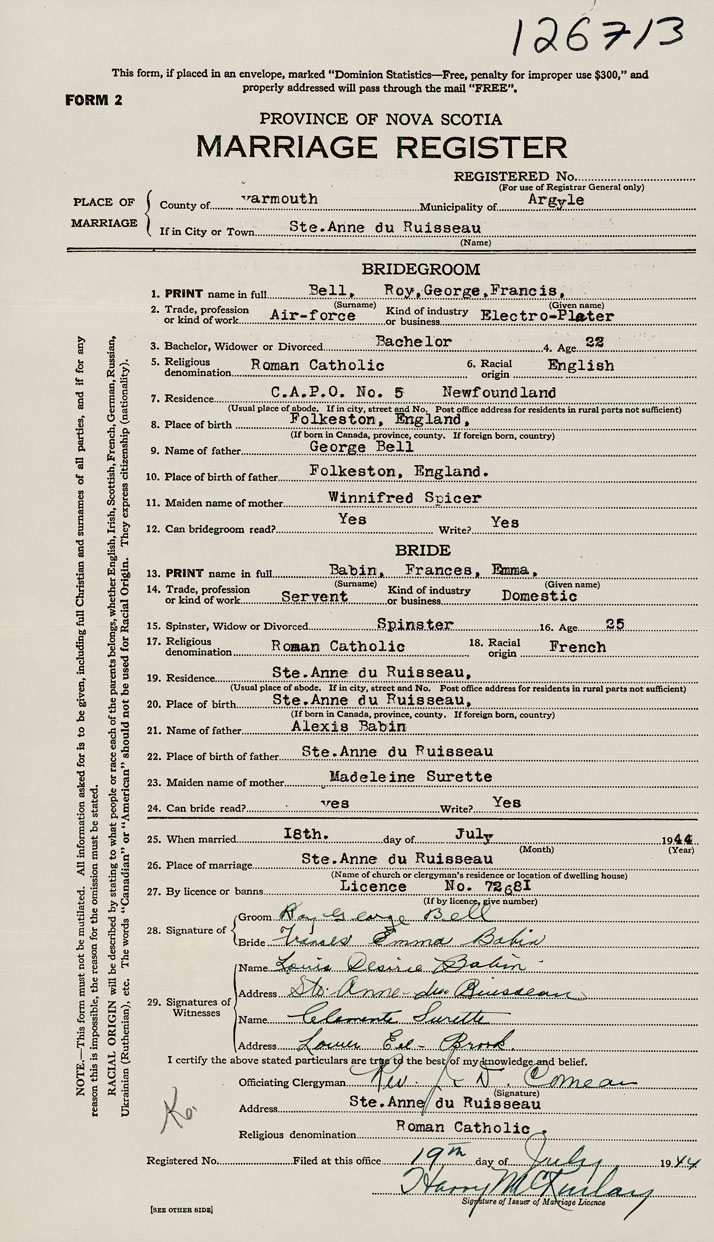 126713
This form, if placed in an envelope, marked "Dominion Statistics—Free, penalty for improper use $300," and
properly addressed will pass through the mail "FREE".
FORM 2
PROVINCE OF NOVA SCOTIA
MARRIAGE REGISTER
REGISTERED No.
(For use of Registrar General only)
PLACE OF MARRIAGE
County of Yarmouth Municipality of Argyle
If in City or Town Ste.Anne du Ruisseau
(Name)
BRIDEGROOM
1. PRINT name in full Bell, Roy,George,Francis,
(Surname) (Given name)
2. Trade, profession or kind of work Air-force Kind of industry or business Electro-Plater
3. Bachelor, Widower or Divorced Bachelor 4. Age 22
5. Religious denomination Roman Catholic 6. Racial origin English
7. Residence C.A.P.O. No. 5 Newfoundland
(Usual place of abode. If in city, street and No. Post office address for residents in rural parts not sufficient)
8. Place of birth Folkeston, England,
(If born in Canada, province, county. If foreign born, country)
9. Name of father George Bell
10. Place of birth of father Folkeston, England.
11. Maiden name of mother Winnifred Spicer
12. Can bridegroom read? Yes Write? Yes
BRIDE
13. PRINT name in full Babin, Frances, Emma,
(Surname) (Given name)
14. Trade, profession or kind of work Servent Kind of industry or business Domestic
15. Spinster, Widow or Divorced Spinster 16. Age 25
17. Religious denomination Roman Catholic 18. Racial origin French
19. Residence Ste.Anne du Ruisseau,
(Usual place of abode. If in city, street and No. Post office address for residents in rural parts not sufficient)
20. Place of birth Ste.Anne du Ruisseau,
(If born in Canada, province, county. If foreign born, country)
21. Name of father Alexis Babin
22. Place of birth of father Ste.Anne du Ruisseau
23. Maiden name of mother Madeleine Surette
24. Can bride read? yes Write? Yes
25. When married I8th. day of July 1944
(Month) (Year)
26. Place of marriage Ste.Anne du Ruisseau
(Name of church or clergyman's residence or location of dwelling house)
27. By licence or banns Licence No. 7268I
(If by licence, give number)
28. Signature of
Groom Roy George Bell
Bride Frances Emma Babin
29. Signatures of Witnesses
Name Louis Desirie Babin
Address Ste. Anne du Ruisseau
Name Clemente Surette
Address Lower Eel-Brook
I certify the above stated particulars are true to the best of my knowledge and belief.
Officiating Clergyman Rev. D. Comeau
(Signature)
Address Ste.Anne du Ruisseau
Religious denomination Roman Catholic.
Registered No. Filed at this office 19th day of July 1944
Harry McKinlay
Signature of Issuer of Marriage Licence
[SEE OTHER SIDE]
NOTE.—This form must not be mutilated. All information asked for is to be given, including full Christian and surnames of all parties, and if for any
reason this is impossible, the reason for the omission must be stated.
RACIAL ORIGIN will be described by stating to what people or race each of the parents belongs, whether English, Irish, Scottish, French, German, Russian,
Ukrainian (Ruthenian), etc. The words "Canadian" or "American" should not be used for Racial Origin. They express citizenship (nationality).